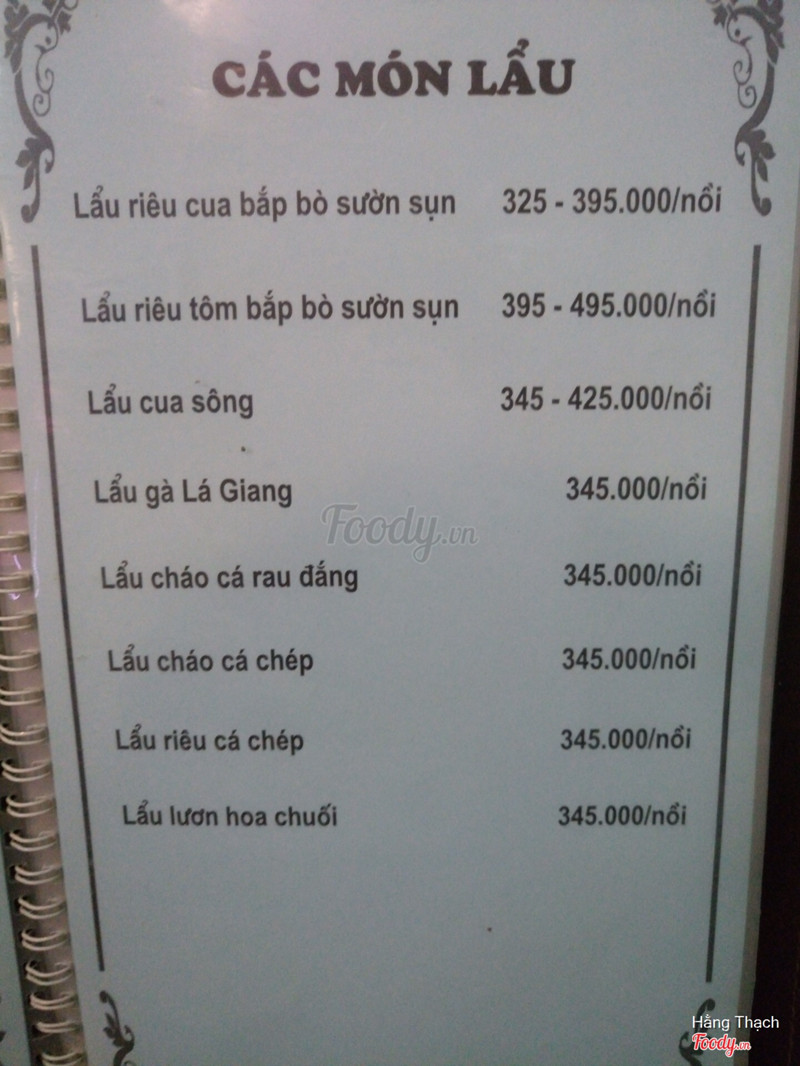 CÁC MÓN LẨU
Lẩu riêu cua bắp bò sườn sụn 325 - 395.000/nồi
Lẩu riêu tôm bắp bò sườn sụn 395 - 495.000/nồi
Lẩu cua sông 345 - 425.000/nồi
Lẩu gà Lá Giang 345.000/nồi
Foody.vn
Lẩu cháo cá rau đắng 345.000/nồi
Lẩu cháo cá chép 345.000/nồi
Lẩu riêu cá chép 345.000/nồi
Lẩu lươn hoa chuối 345.000/nồi
Hằng Thạch
Foody.vn